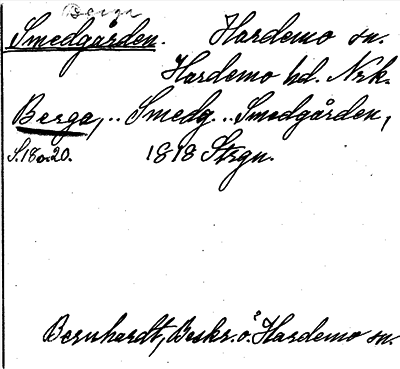 Berga
Smedgården. Hardemo sn.
Hardemo hd. Nrk.
Berga, .. Smedg... Smedgården,
S. 18 o. 20. 1818 Strgn.
Bernhardt, Beskr. ö. Hardemo sn.